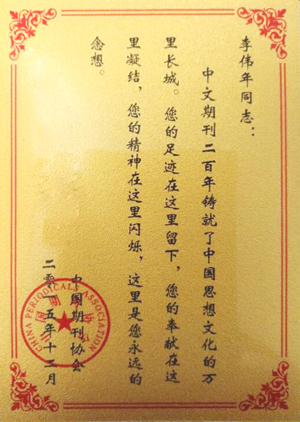 李伟年同志：
中文期刊二百年铸就了中国思想文化的万
里长城。您的足迹在这里留下，您的奉献在这
里凝结，您的精神在这里闪烁，这里是您永远的
念想。
中国期刊协会
二零一五年十二月
CHINA PERIODICALS ASSOCIATION